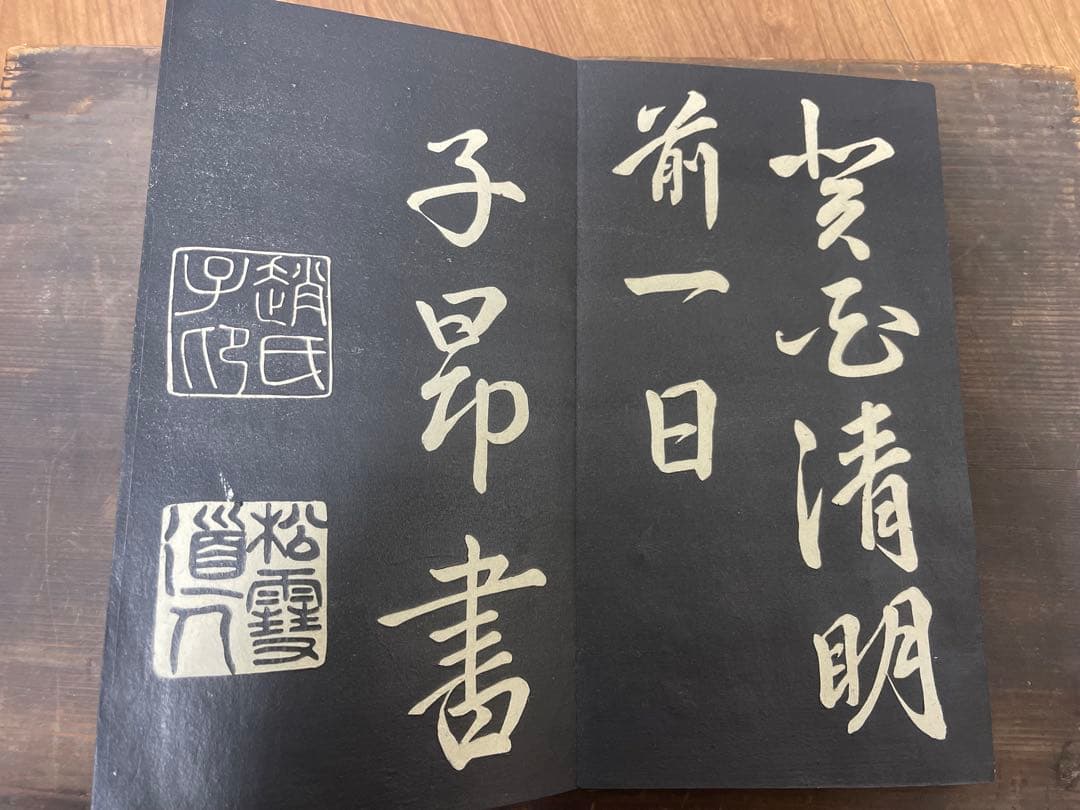 癸丑清明
前一日
子昂書
趙氏
子卬
松雪
道人